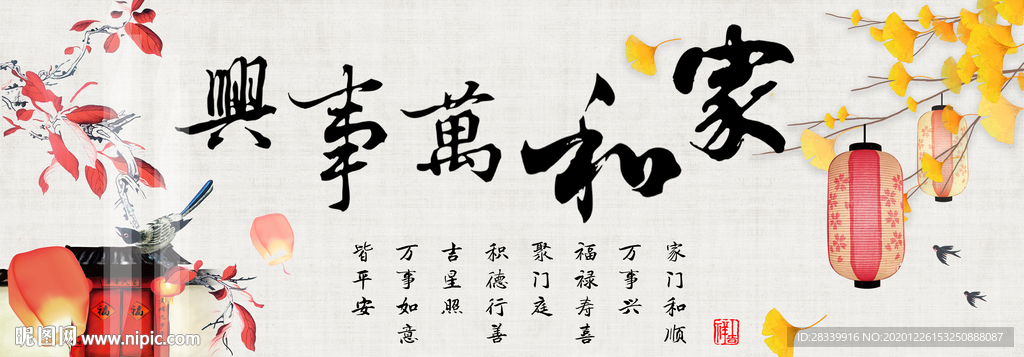 家和萬事興
家门和顺
万事兴
福禄寿喜
聚门庭
积德行善
吉星照
万事如意
皆平安
福 福
昵图网 www.nipic.com
ID:28339916 NO:20201226153250888087